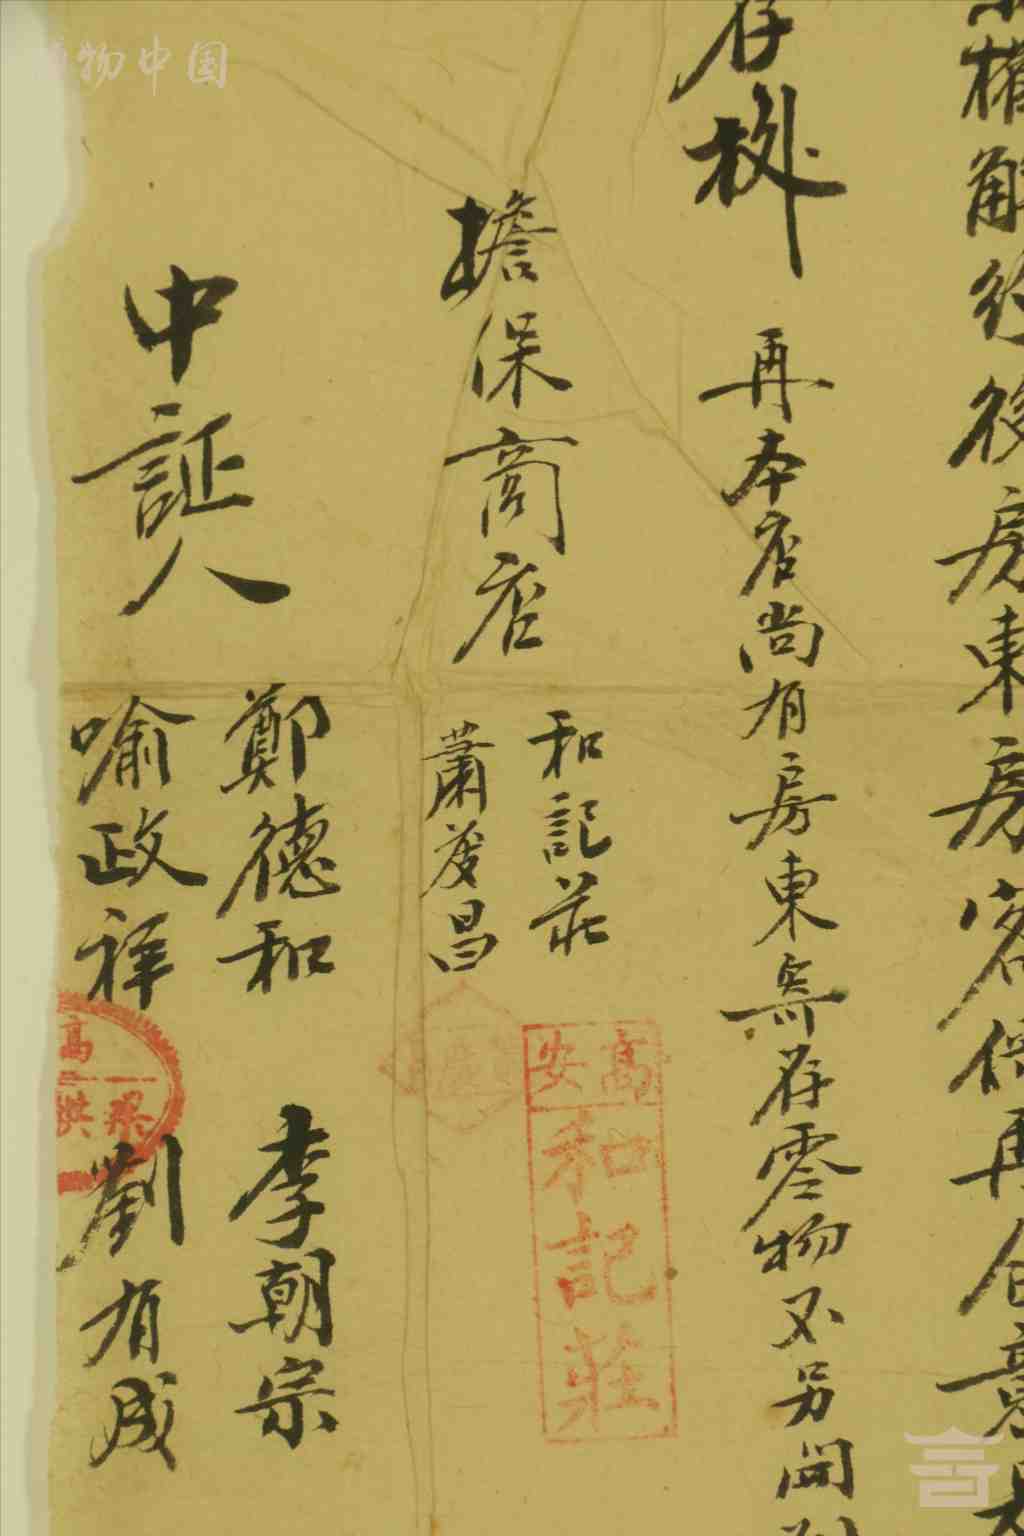 權解約後房東房客得再合意
存拠
再本店尚有房東無存零物又另開列
擔保商店
和記莊
蕭慶昌
高安
和記莊
中証人
鄭德和
李朝宗
喻政祥
劉有成
高
物中国